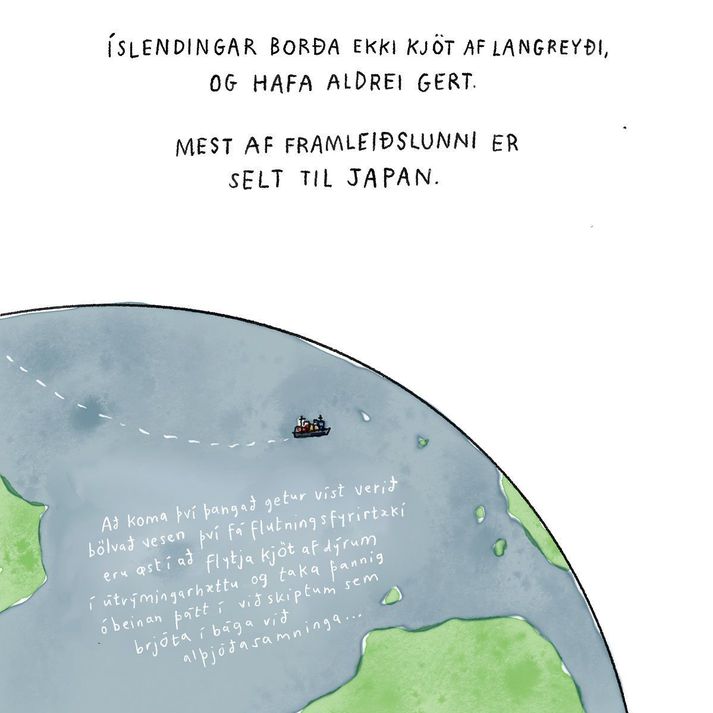 ÍSLENDINGAR BORÐA EKKI KJÖT AF LANGREYÐI,
OG HAFA ALDREI GERT.
MEST AF FRAMLEIÐSLUNNI ER
SELT TIL JAPAN.
Að koma því þangað getur víst verið
bölvað vesen því fá flutningsfyrirtæki
eru æst í að flytja kjöt af dýrum
í útrýmingarhættu og taka þannig
óbeinan þátt í viðskiptum sem
brjóta í bága við
alþjóðasamninga...